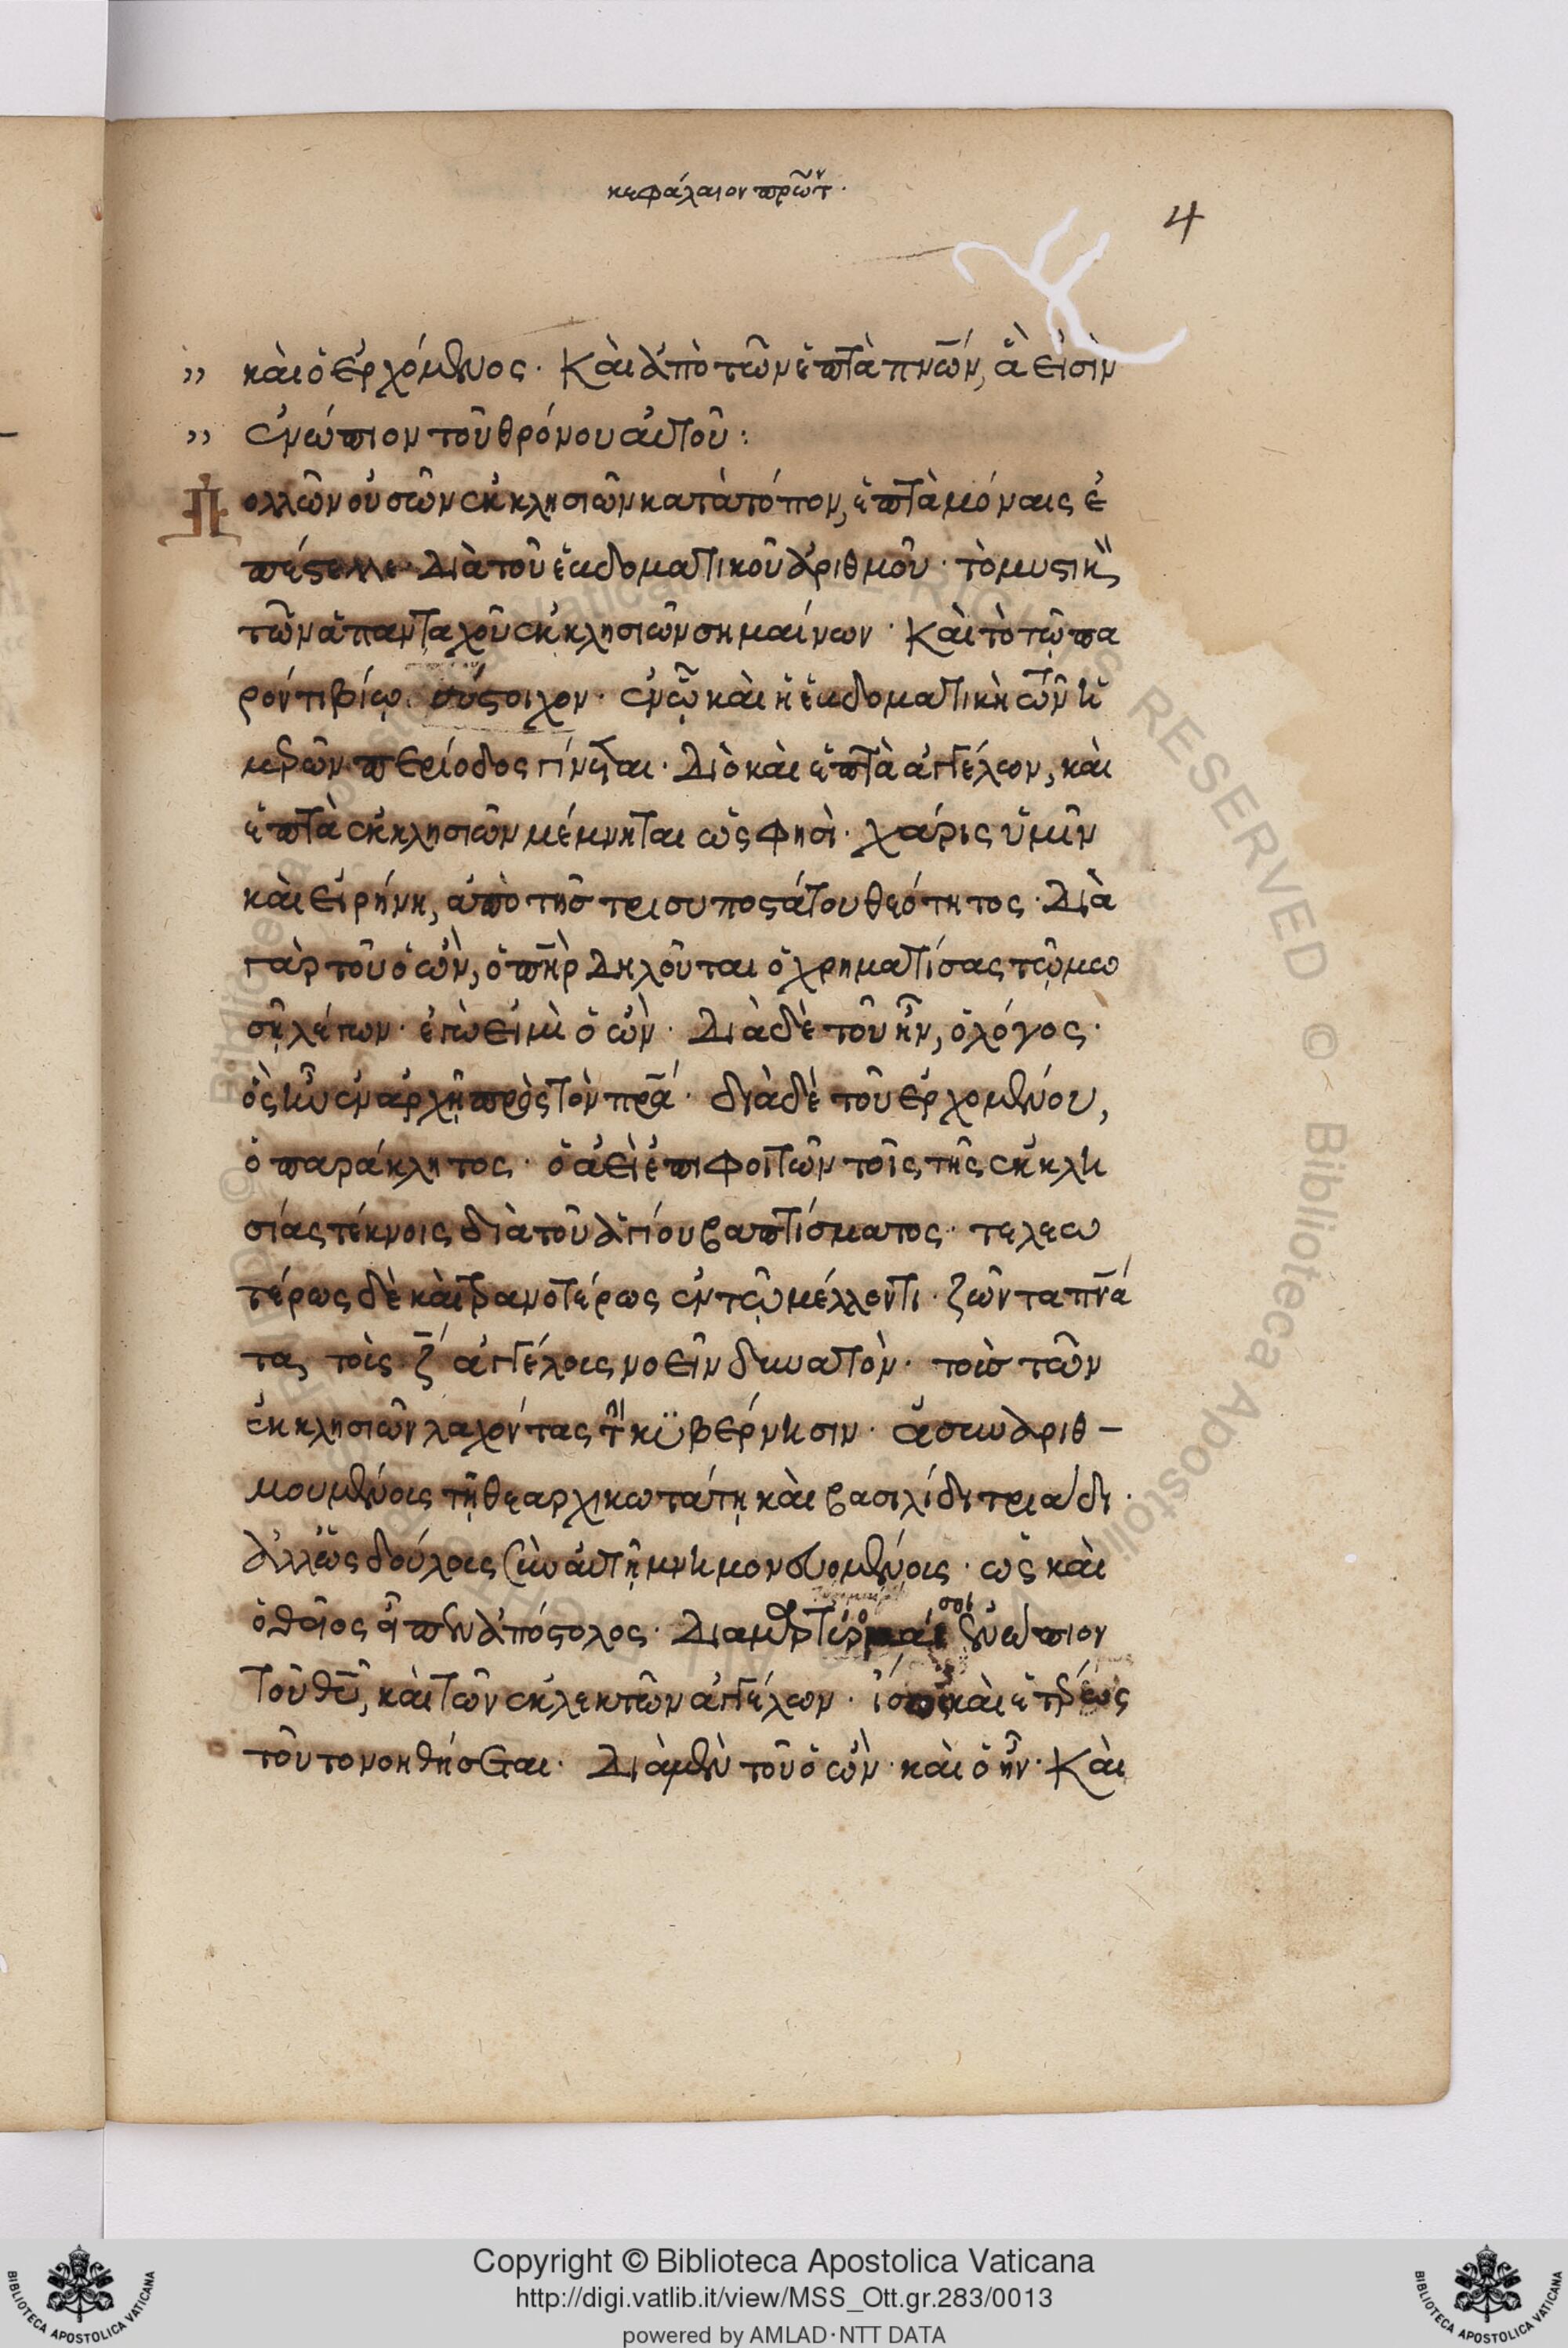 κεφάλαιον πρῶτον·
4
,, καὶ ὁ ἐρχόμενος· Καὶ ἀπὸ τῶν ἑπτὰ πνῶν, ἅ εἰσὶν
,, ἐνώπιον τοῦ θρόνου αὐτοῦ:
Πολλῶν οὐσῶν ἐκκλησιῶν κατὰ τόπον, ἑπτὰ μόναις ἐ
πέστελλε· Διὰ τοῦ ἑβδοματικοῦ ἀριθμοῦ· τὸ μυστικὸν
τῶν ἁπανταχοῦ ἐκκλησιῶν σημαίνων· Καὶ τὸ τῷ πα
ρόντι βίῳ σύστοιχον· ἐν ᾧ καὶ ἡ ἑβδοματικὴ τῶν ἡ
μερῶν περίοδος γίνεται· Διὸ καὶ ἑπτὰ ἀγγέλων, καὶ
ἑπτὰ ἐκκλησιῶν μέμνηται ὥς φησὶ· χάρις ὑμῖν
καὶ εἰρήνη, ἀπὸ τῆς τρισυποστάτου θεότητος· Διὰ
γὰρ τοῦ ὁ ὢν, ὁ πὴρ Δηλοῦται ὁ χρηματίσας τῷ μω
σῇ λέγων· ἐγὼ εἰμὶ ὁ ὢν· Διὰ δὲ τοῦ ἦν, ὁ λόγος·
ὃς ἦν ἐν ἀρχῇ πρὸς τὸν πρα· διὰ δὲ τοῦ ἐρχομένου,
ὁ παράκλητος· ὁ ἀεὶ ἐπιφοιτῶν τοῖς τῆς ἐκκλη
σίας τέκνοις διὰ τοῦ ἁγίου βαπτίσματος· τελεω
τέρως δὲ καὶ τρανοτέρως ἐν τῷ μέλλοντι· ζῶντα πνά
τα, τοὶς ζ ἀγγέλοις νοεῖν δυνατὸν· τοὶσ τῶν
ἐκκλησιῶν λαχόντας τὴν κϋβέρνησιν· ἃ συναριθ-
μουμένοις τῇ θεαρχικωτάτῃ καὶ βασιλίδι τριάδι·
ἀλλ' ὡς δούλοις σὺν αὐτῇ μνημονευομένοις· ὡς καὶ
ὁ θεῖος ἔφη ἀπόστολος· Διαμαρτύρομαί σοι ἐνώπιον
τοῦ θυ, καὶ τῶν ἐκλεκτῶν ἀγγέλων· ἴσως καὶ ἑτέρως
τοῦτο νοηθήσεται· Διὰ μὲν τοῦ ὁ ὢν· καὶ ὁ ἦν· Καὶ
Copyright © Biblioteca Apostolica Vaticana
http://digi.vatlib.it/view/MSS_Ott.gr.283/0013
powered by AMLAD·NTT DATA
BIBLIOTECA APOSTOLICA VATICANA
BIBLIOTECA APOSTOLICA VATICANA